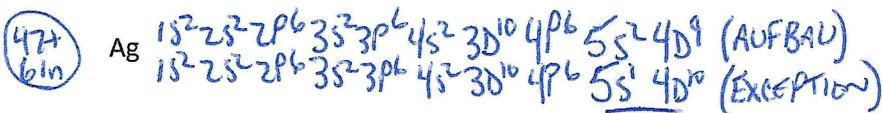 47+
61n
Ag 1s² 2s² 2p⁶ 3s² 3p⁶ 4s² 3D¹⁰ 4p⁶ 5s² 4D⁹ (AUFBAU)
1s² 2s² 2p⁶ 3s² 3p⁶ 4s² 3D¹⁰ 4p⁶ 5s¹ 4D¹⁰ (EXCEPTION)